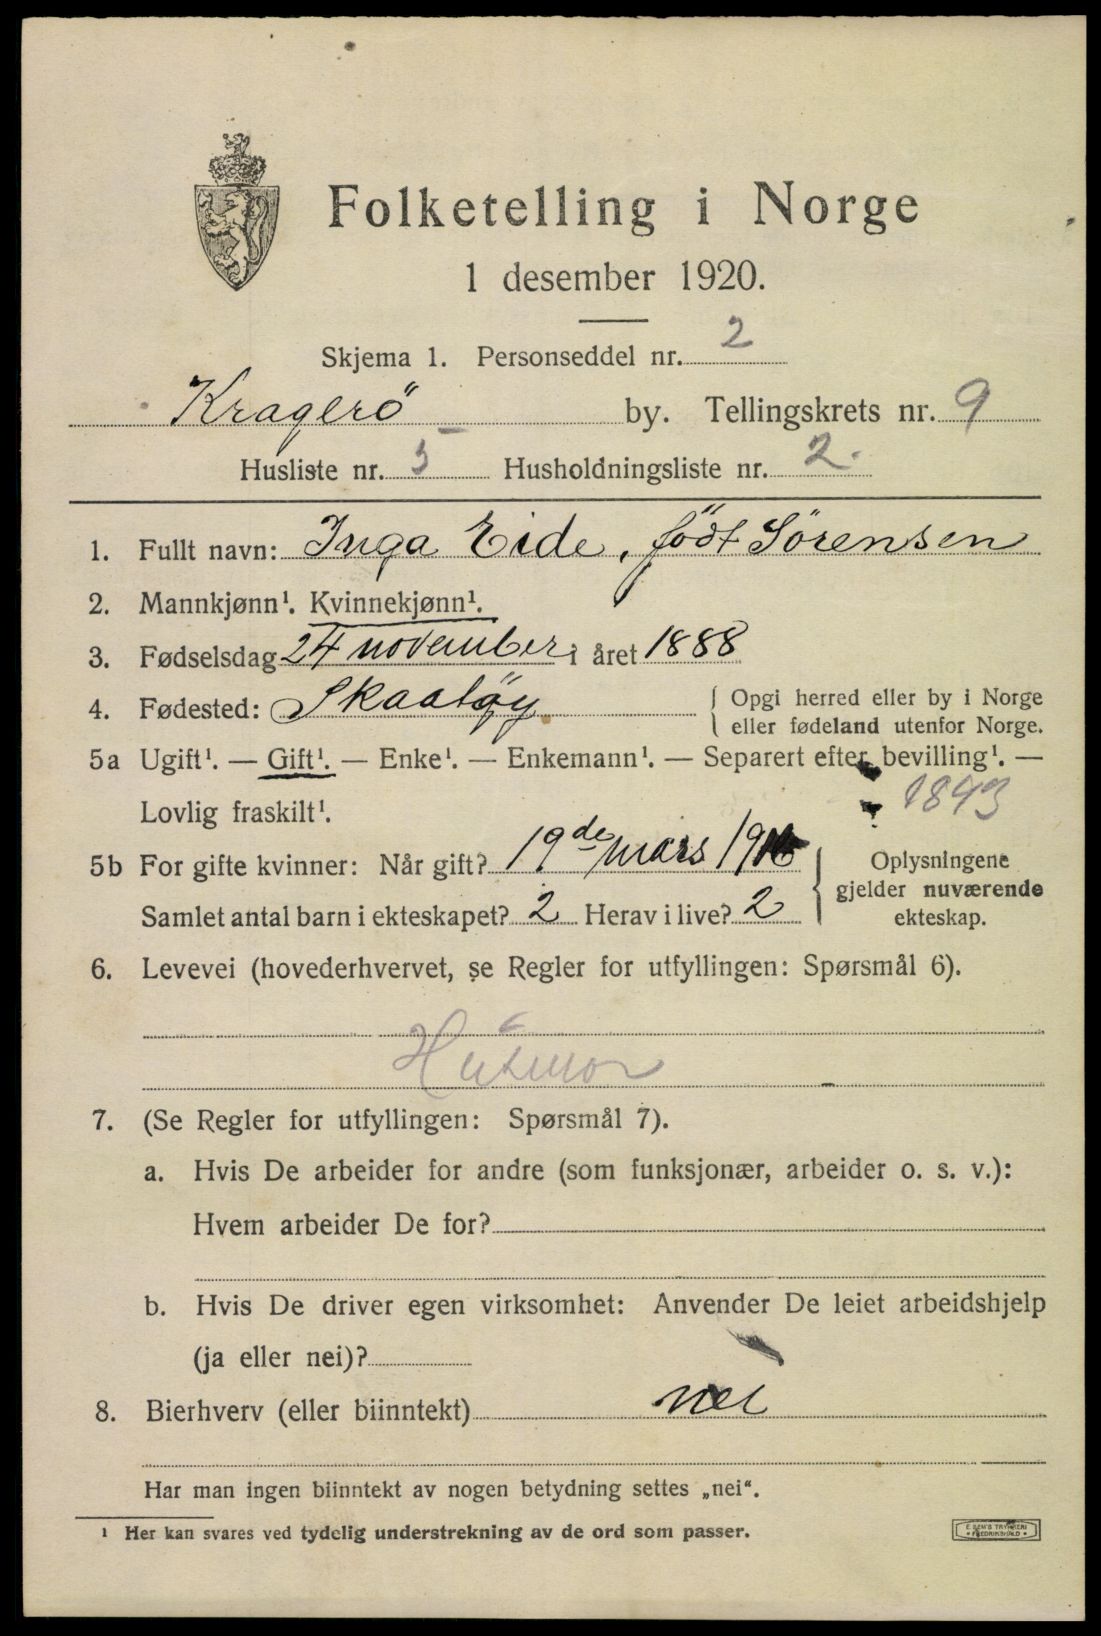 Folketelling i Norge
1 desember 1920.
Skjema 1. Personseddel nr. 2
Kragerö by. Tellingskrets nr. 9
Husliste nr. 5 Husholdningsliste nr. 2.
1. Fullt navn: Inga Eide, födt Sörensen
2. Mannkjønn¹. Kvinnekjønn¹.
3. Fødselsdag 24 november i året 1888
4. Fødested: Skaatøy
{ Opgi herred eller by i Norge
eller fødeland utenfor Norge.
5a Ugift¹. — Gift¹. — Enke¹. — Enkemann¹. — Separert efter bevilling¹. —
Lovlig fraskilt¹.
1843
5b For gifte kvinner: Når gift? 19de mars
Samlet antal barn i ekteskapet? 2 Herav i live? 2
{ Oplysningene
gjelder nuværende
ekteskap.
6. Levevei (hovederhvervet, se Regler for utfyllingen: Spørsmål 6).
Husmor
7. (Se Regler for utfyllingen: Spørsmål 7).
a. Hvis De arbeider for andre (som funksjonær, arbeider o. s. v.):
Hvem arbeider De for?
b. Hvis De driver egen virksomhet: Anvender De leiet arbeidshjelp
(ja eller nei)?
8. Bierhverv (eller biinntekt) nei
Har man ingen biinntekt av nogen betydning settes „nei“.
¹ Her kan svares ved tydelig understrekning av de ord som passer.
E. SEM'S TRYKKERI
FREDRIKSHALD